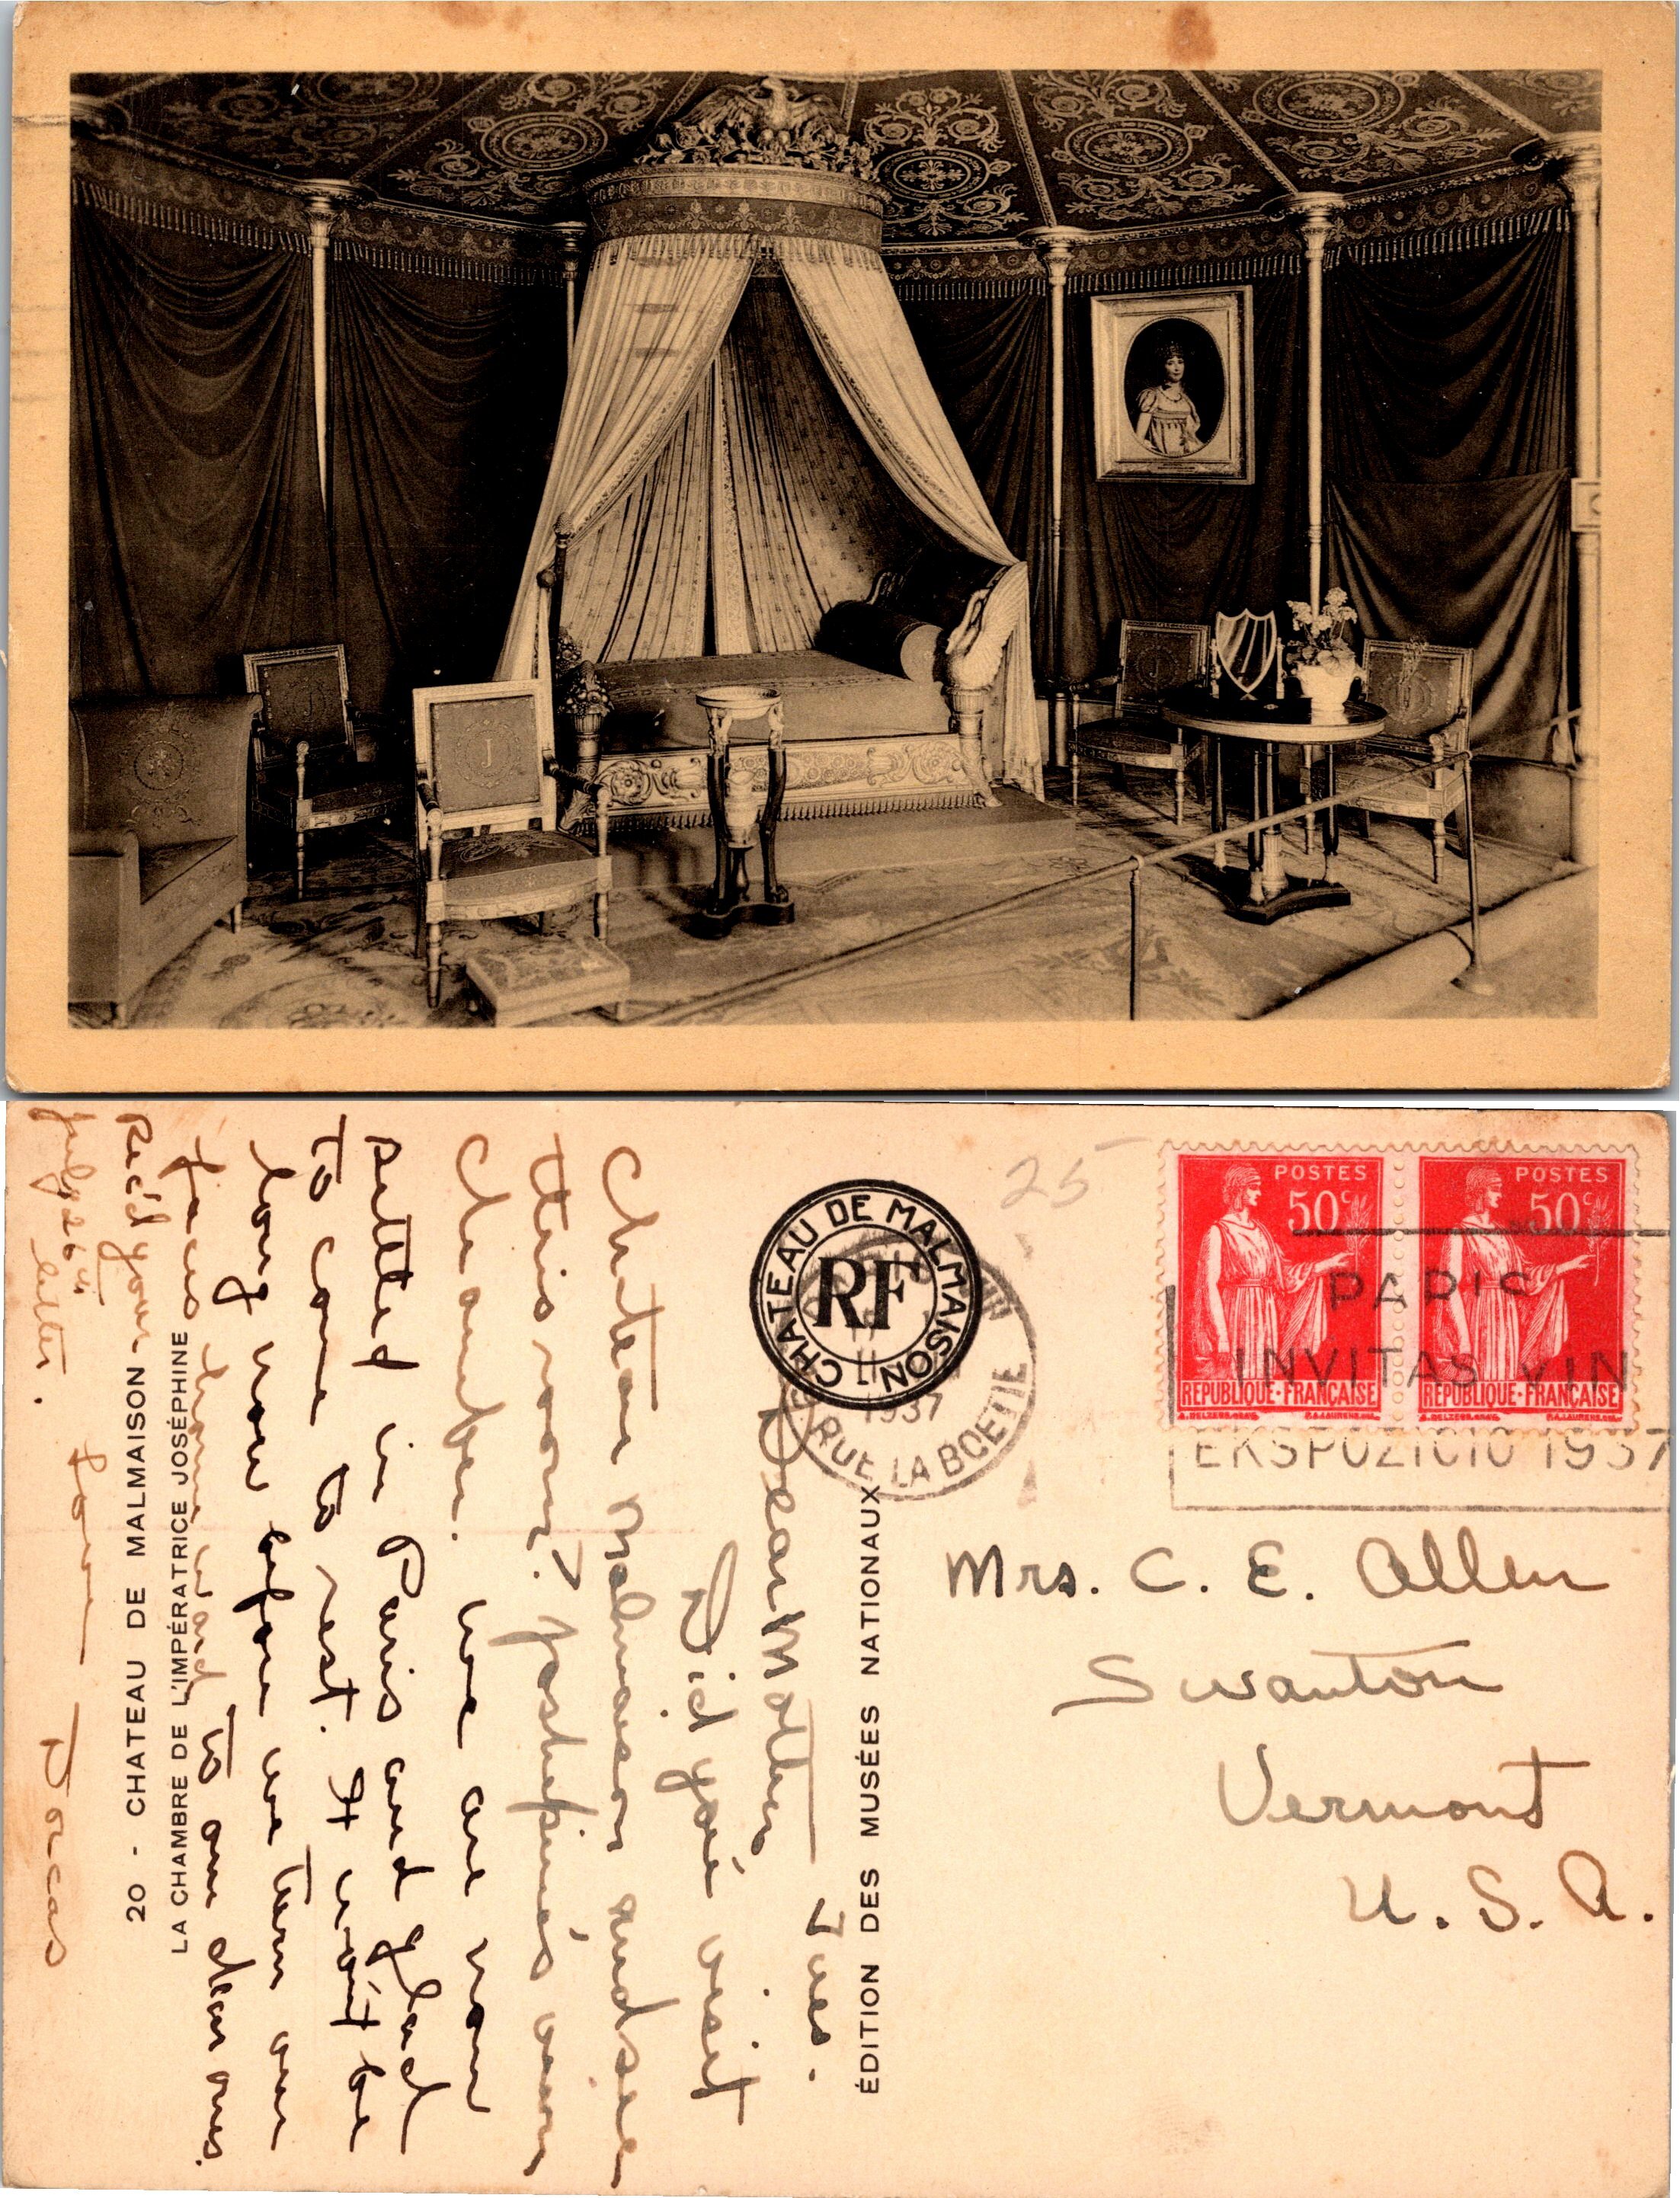 J
J
J
25
POSTES
50c
RÉPUBLIQUE·FRANÇAISE
POSTES
50c
RÉPUBLIQUE·FRANÇAISE
PARIS
INVITAS VIN
EKSPOZICIO 1937
CHATEAU DE MALMAISON
RF
1937
RUE LA BOETIE
Mrs. C. E. Allen
Swanton
Vermont
U. S. A.
ÉDITION DES MUSÉES NATIONAUX
Tues.
Dear Mother
Did you visit
Chateau Malmaison and see
this room? Josephine's own
chamber. We are now
settled in Paris and glad
to come to rest. It won't be
long now before we turn our
faces homeward to our dear ones.
Rec'd your
letter.
Love
Dorcas
20 - CHATEAU DE MALMAISON
LA CHAMBRE DE L'IMPÉRATRICE JOSÉPHINE